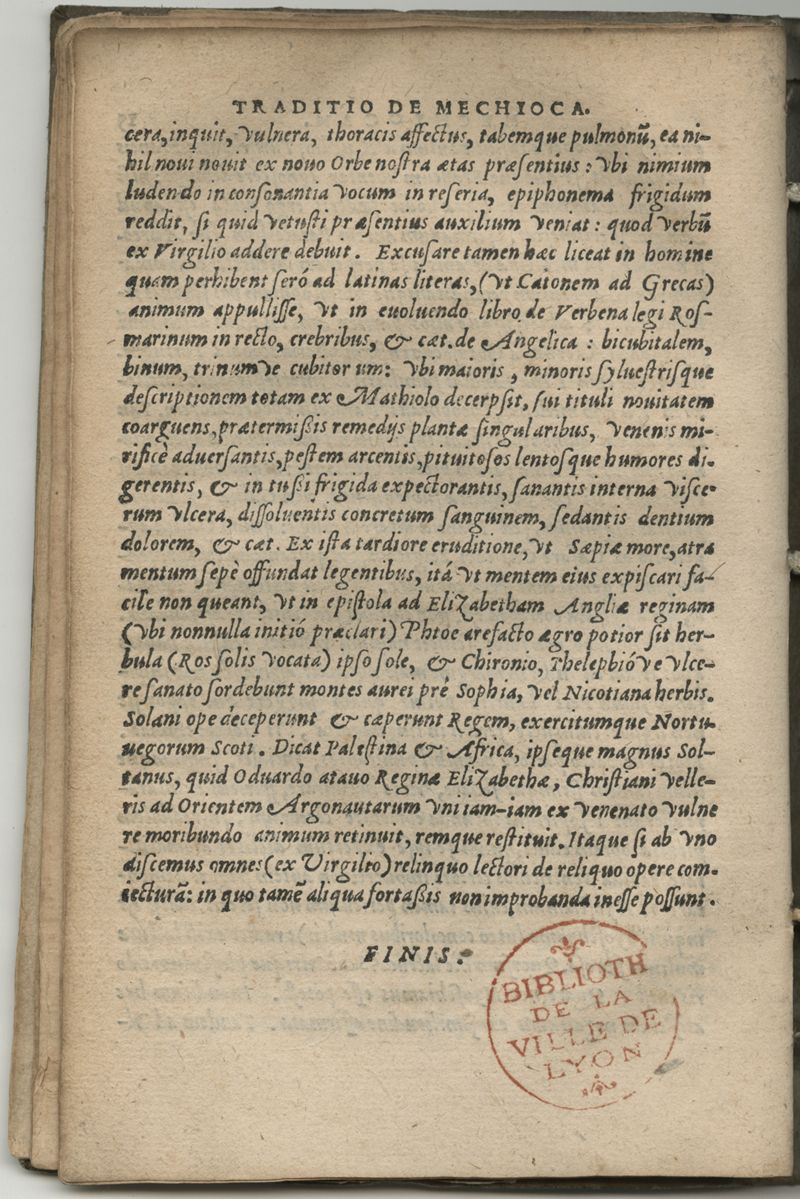 TRADITIO DE MECHIOCA.
cera, inquit, vulnera, thoracis affectus, tabemque pulmonū, ea ni-
hil noui nouit ex nouo Orbe nostra ætas præsentius: vbi nimium
ludendo in consonantia vocum in re seria, epiphonema frigidum
reddit, si quid vetusti præsentius auxilium veniat: quod verbū
ex Virgilio addere debuit. Excusare tamen hæc liceat in homine
quam perhibent seró ad latinas literas, (vt Catonem ad Grecas)
animum appullisse, vt in euoluendo libro de Verbena legi Ros-
marinum in recto, crebribus, & cæt. de Angelica: bicubitalem,
binum, trinumve cubitorum: vbi maioris, minoris syluestrisque
descriptionem totam ex Mathiolo decerpsit, sui tituli nouitatem
coarguens, prætermißis remedijs plantæ singularibus, venenis mi-
rificè aduersantis, pestem arcentis, pituitosos lentosque humores di-
gerentis, & in tußi frigida expectorantis, sanantis interna visce-
rum vlcera, dissoluentis concretum sanguinem, sedantis dentium
dolorem, & cæt. Ex ista tardiore eruditione, vt Sæpiæ more, atra
mentum sepè offundat legentibus, itá vt mentem eius expiscari fa-
cile non queant, vt in epistola ad Elizabetham Angliæ reginam
(vbi nonnulla initió præclari) Phtoe arefacto agro potior sit her-
bula (Ros solis vocata) ipso sole, & Chironio, Thelephióve vlce-
re sanato sordebunt montes aurei prè Sophia, vel Nicotiana herbis.
Solani ope deceperunt & cæperunt Regem, exercitumque Nortu-
uegorum Scoti. Dicat Palestina & Africa, ipseque magnus Sol-
tanus, quid Oduardo atauo Reginæ Elizabethæ, Christiani velle-
ris ad Orientem Argonautarum vni iam-iam ex venenato vulne
re moribundo animum retinuit, remque restituit. Itaque si ab vno
discemus omnes (ex Virgilio) relinquo lectori de reliquo opere com-
iecturā: in quo tamē aliqua fortaßis non improbanda inesse possunt.
FINIS.
BIBLIOTH
DE LA
VILLE DE
LYON